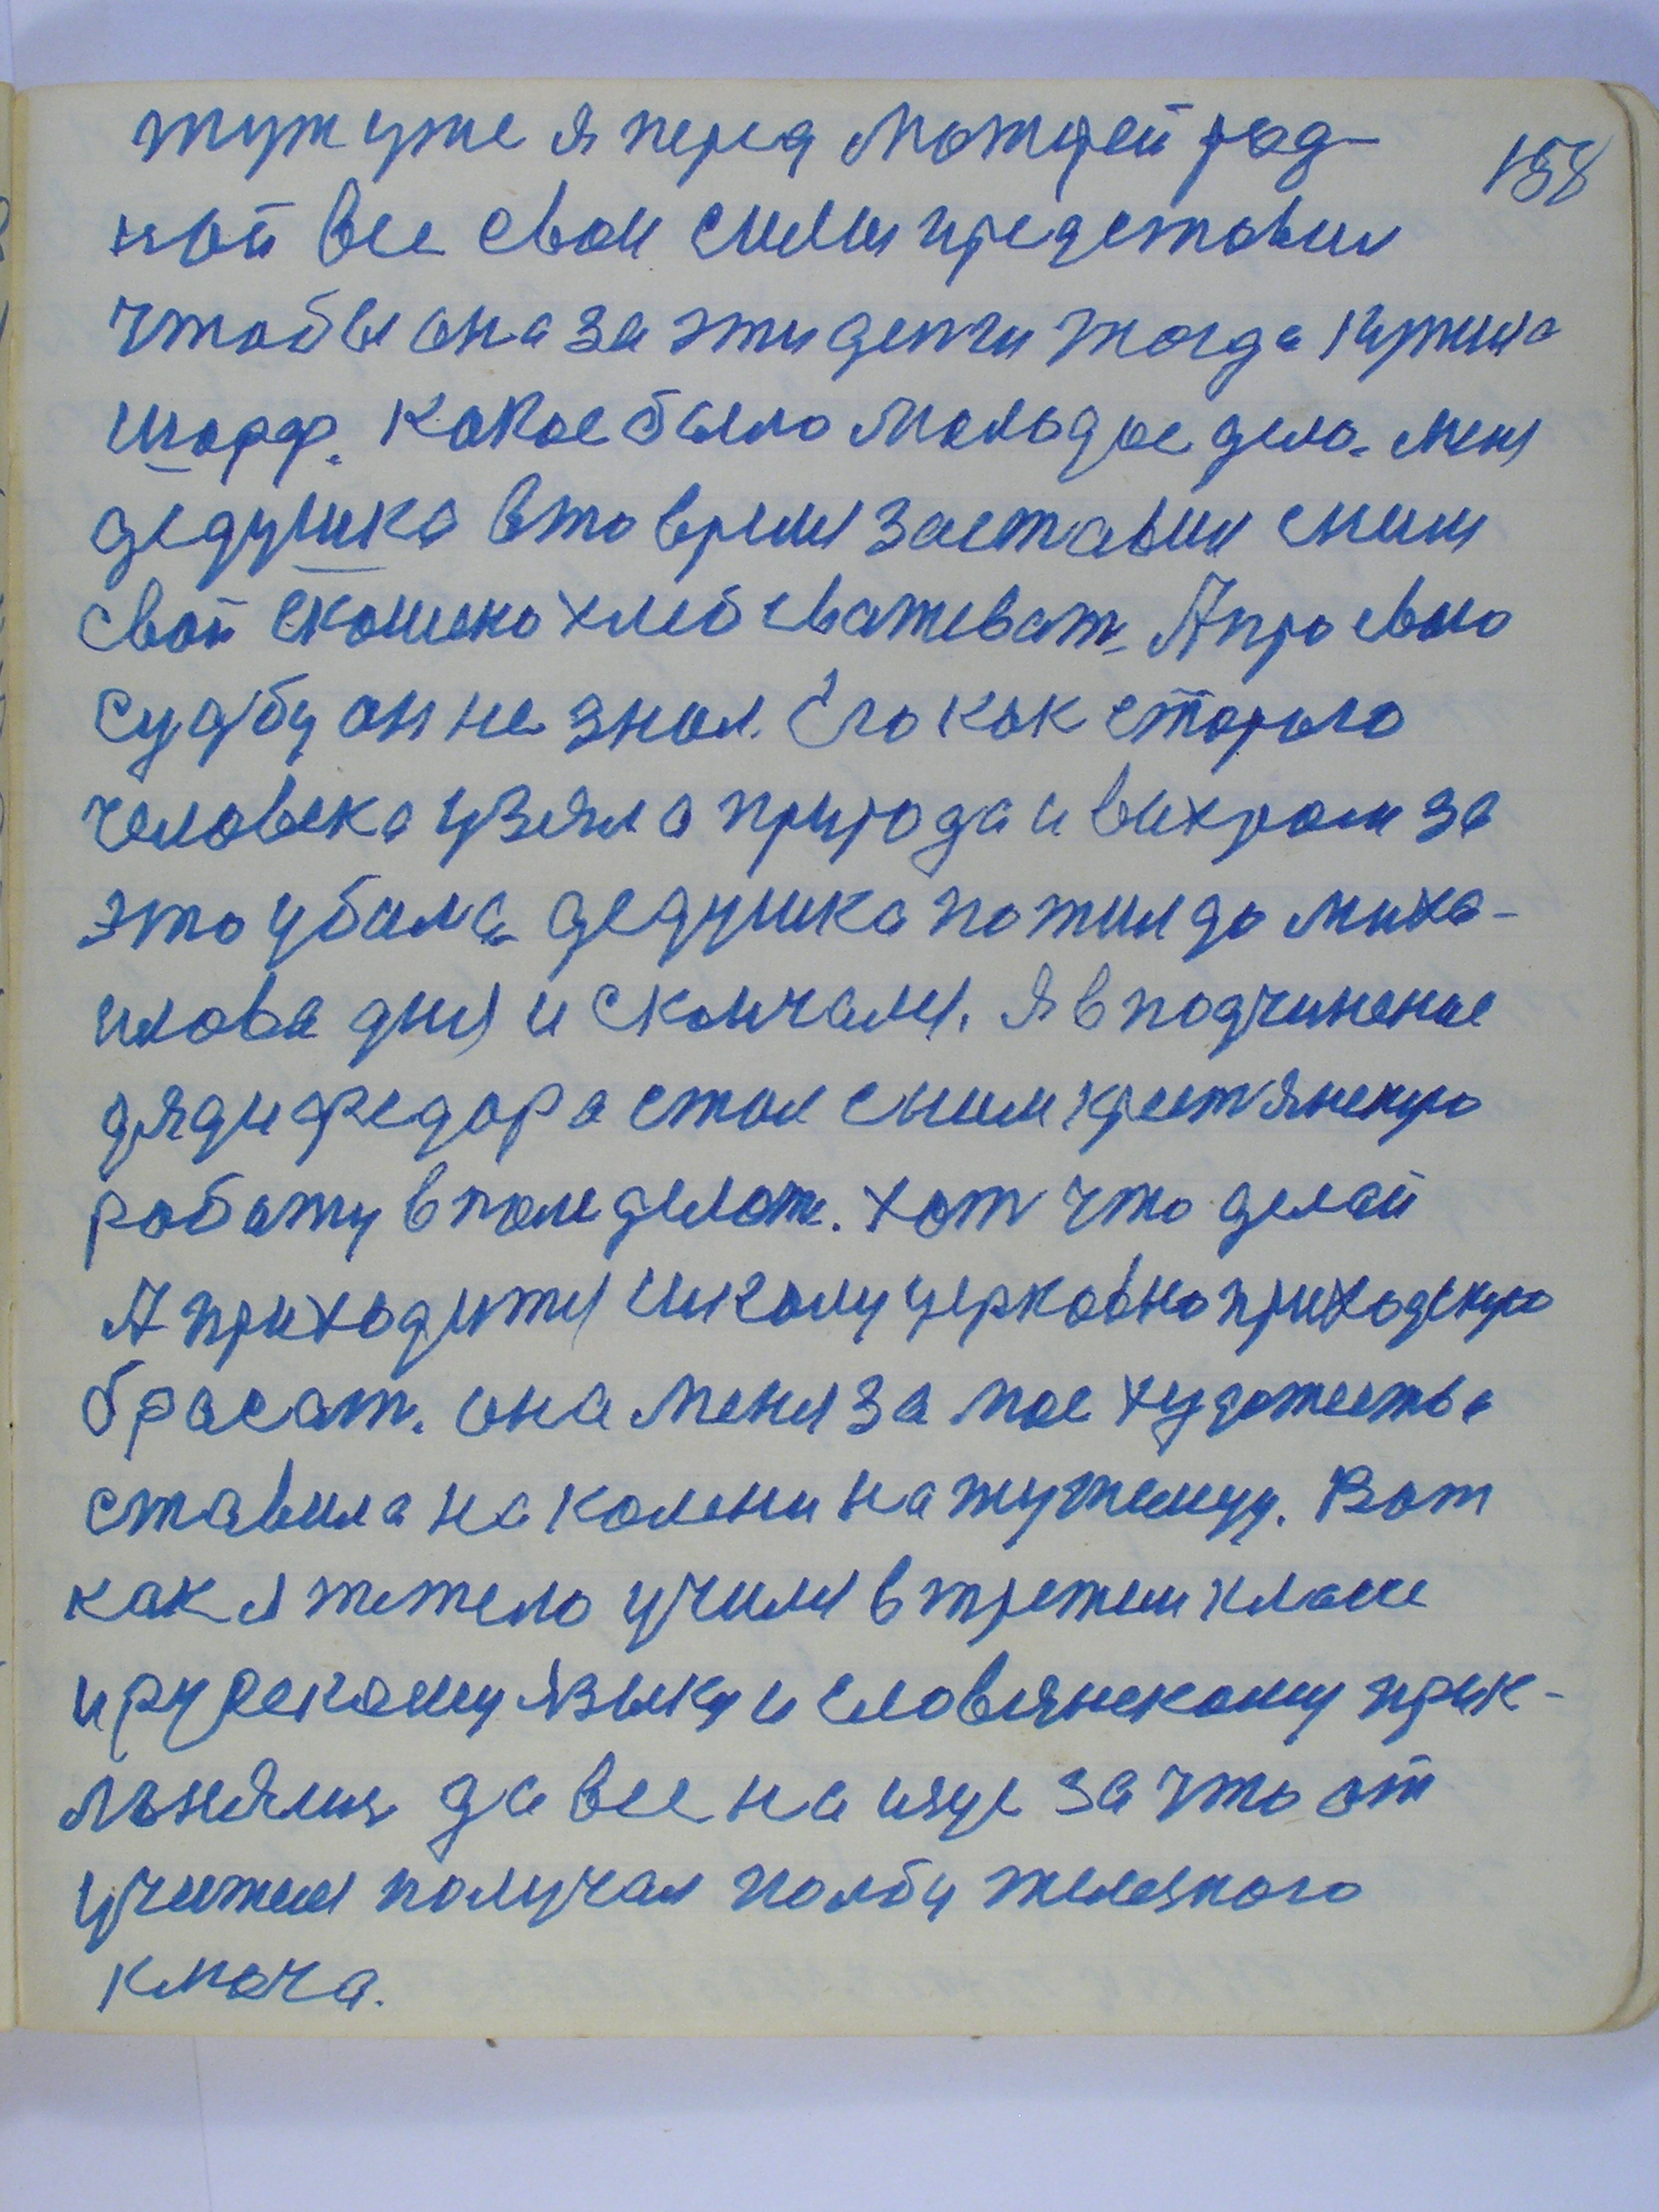 158
тут уже я перед Матрей род-
ной все свои силы представил
чтобы она за эти денги тогда купила
шарф. Какое было молодое дело. меня
дедушка вто время заставил сним
свой скошено хлеб сватеват. А про свою
судбу он не знал. Его как старого
человека узяла природа и вихром за
это убила. дедушка пожил до миха-
илова дня и скончался. Я в подчинение
дяди федора стал сним крестянскую
работу вполи делат. Хот что делай
А приходится школу церковно приходскую
бросат. она меня за мое художества
ставила на колени на жужелицу. Вот
как я тяжело учился втретем класе
и рускому языку и словянскому прик-
лонялся да все на изус за что от
учителя получал по лбу железного
ключа.